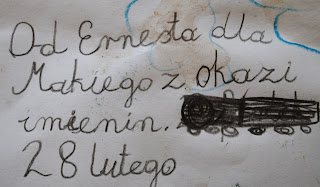 Od Ernesta dla
Makiego z okazi
imienin.
28 lutego